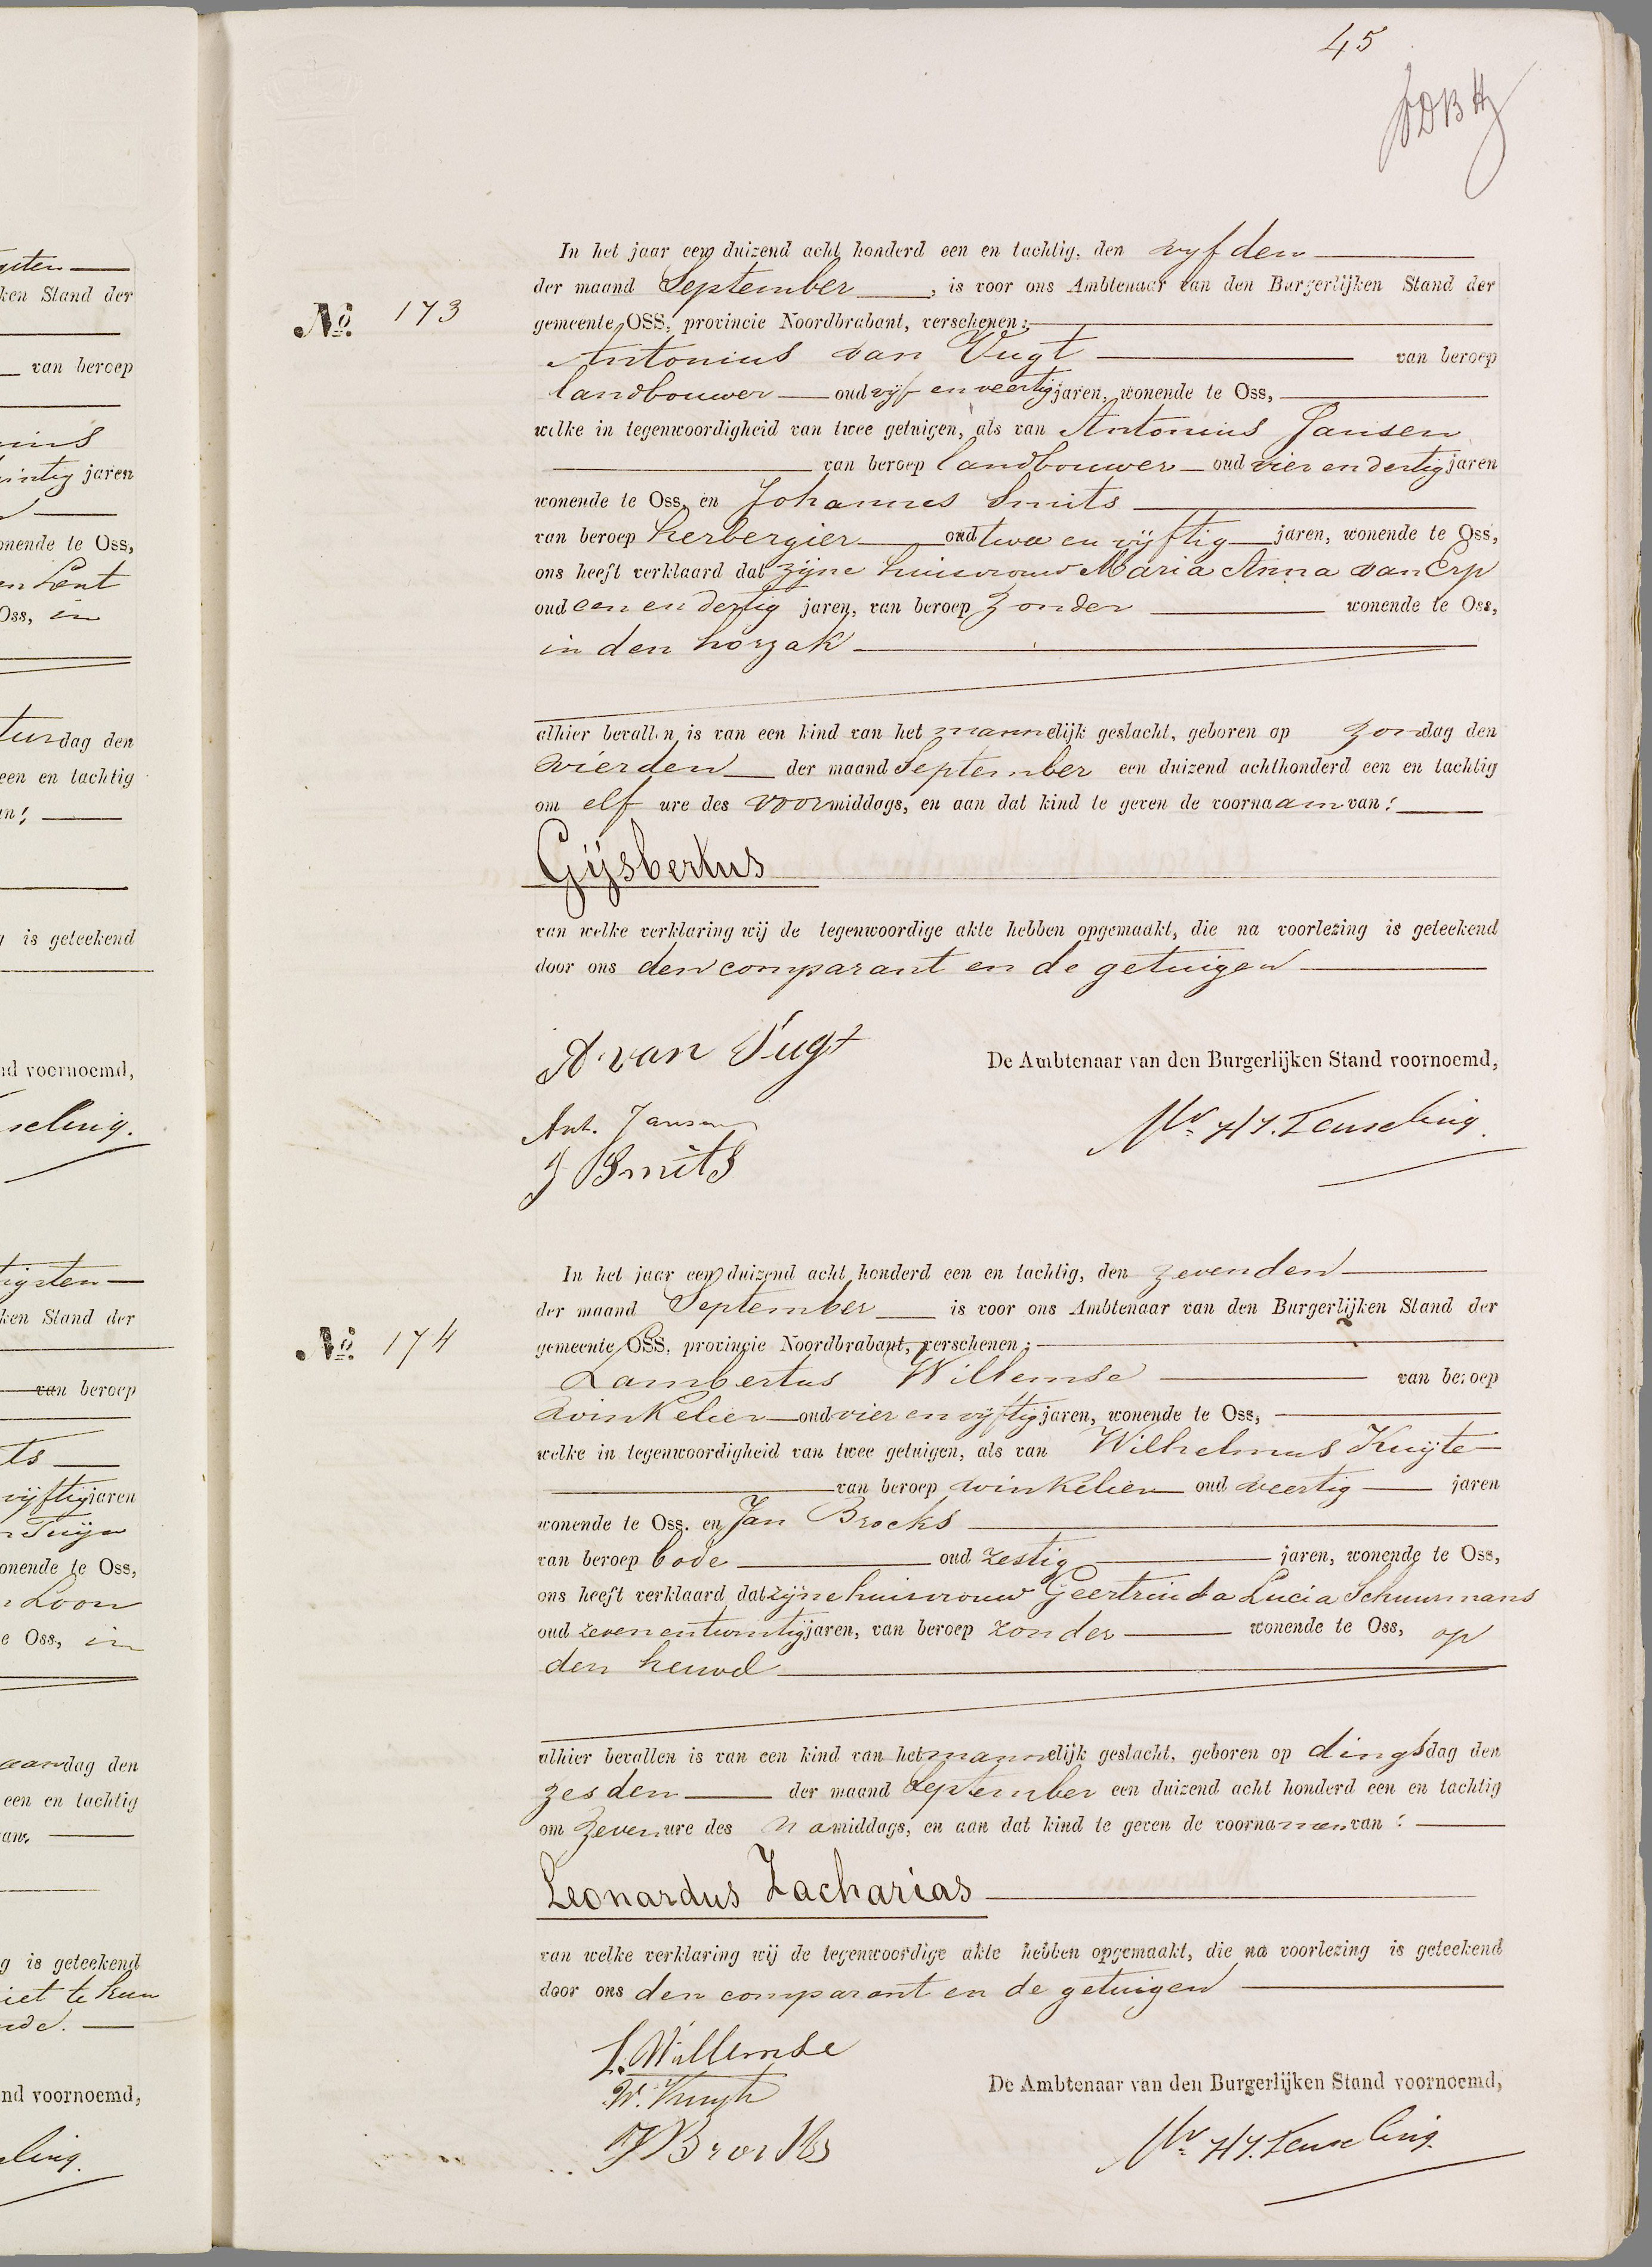 45
In het jaar een duizend acht honderd een en tachtig, den vyfden
der maand September, is voor ons Ambtenaar van den Burgerlijken Stand der
No. 173
gemeente OSS, provincie Noordbrabant, verschenen:
Antonius van Vugt van beroep
landbouwer oud vyf en veertig jaren, wonende te Oss,
welke in tegenwoordigheid van twee getuigen, als van Antonius Jansen
van beroep landbouwer oud vier en dertig jaren
wonende te Oss, en Johannes Smits
van beroep herbergier oud twee en vijftig jaren, wonende te Oss,
ons heeft verklaard dat zijne huisvrouw Maria Anna van Erp
oud een en dertig jaren, van beroep zonder wonende te Oss,
in den horzak
alhier bevallen is van een kind van het mannelijk geslacht, geboren op zondag den
vierden der maand September een duizend achthonderd een en tachtig
om elf ure des voormiddags, en aan dat kind te geven de voornaam van:
Gijsbertus
van welke verklaring wij de tegenwoordige akte hebben opgemaakt, die na voorlezing is geteekend
door ons den comparant en de getuigen
A. van Vugt
De Ambtenaar van den Burgerlijken Stand voornoemd,
Ant. Jansen
J Smits
In het jaar een duizend acht honderd een en tachtig, den zevenden
der maand September is voor ons Ambtenaar van den Burgerlijken Stand der
No. 174
gemeente OSS, provincie Noordbrabant, verschenen:
Lambertus Willemse van beroep
winkelier oud vier en vijftig jaren, wonende te Oss,
welke in tegenwoordigheid van twee getuigen, als van Wilhelmus Kuijte
van beroep winkelier oud veertig jaren
wonende te Oss. en Jan Brocks
van beroep bode oud zestig jaren, wonende te Oss,
ons heeft verklaard dat zijne huisvrouw Geertruida Lucia Schuurmans
oud zeven en twintig jaren, van beroep zonder wonende te Oss, op
den heuvel
alhier bevallen is van een kind van het mannelijk geslacht, geboren op dingsdag den
zesden der maand September een duizend acht honderd een en tachtig
om zeven ure des namiddags, en aan dat kind te geven de voornamen van:
Leonardus Zacharias
van welke verklaring wij de tegenwoordige akte hebben opgemaakt, die na voorlezing is geteekend
door ons den comparant en de getuigen
L. Willemse
De Ambtenaar van den Burgerlijken Stand voornoemd,